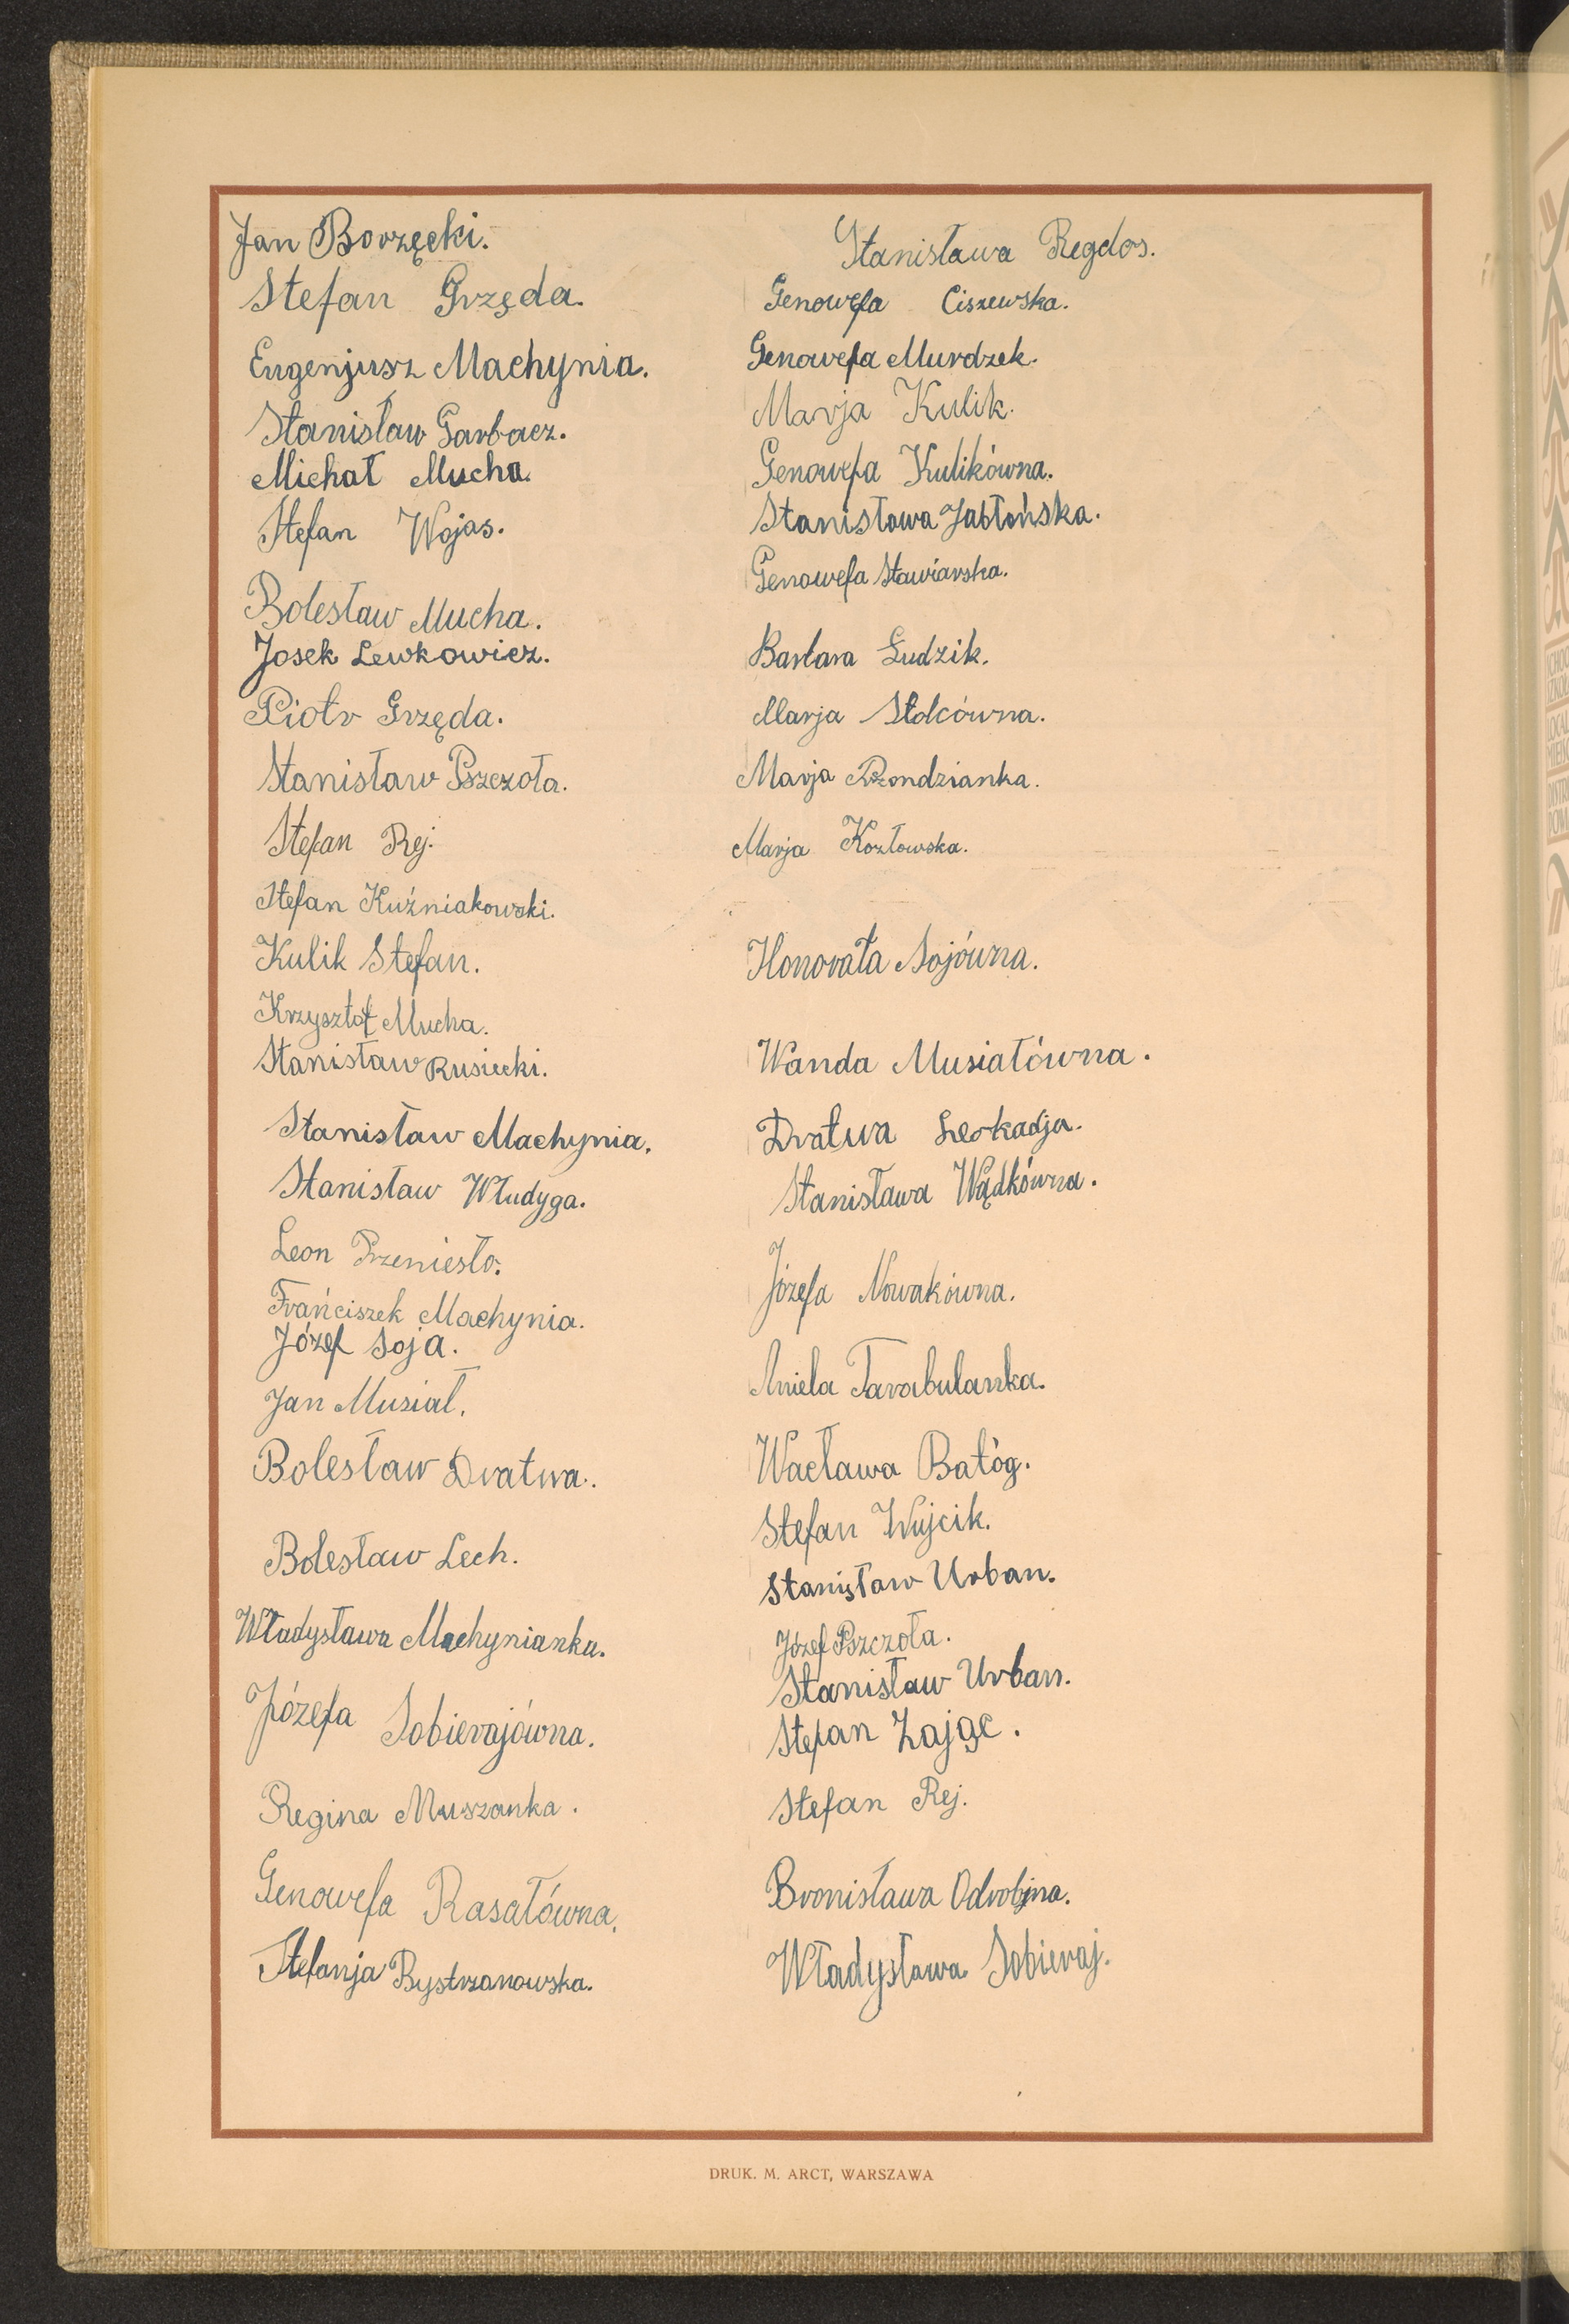 Jan Borzęcki.
Stefan Grzęda.
Eugenjusz Machynia.
Stanisław Garbacz.
Michał Mucha.
Stefan Wojas.
Bolesław Mucha.
Josek Lewkowicz.
Piotr Grzęda.
Stanisław Pszczoła.
Stefan Rej.
Stefan Kuźniakowski.
Kulik Stefan.
Krzysztof Mucha.
Stanisław Rusiecki.
Stanisław Machynia.
Stanisław Włudyga.
Leon Przeniesło.
Frańciszek Machynia.
Józef Soja.
Jan Musiał.
Bolesław Dratwa.
Bolesław Lech.
Władysława Machynianka.
Józefa Sobierajówna.
Regina Muszanka.
Genowefa Rasałówna.
Stefanja Bystrzanowska.
Stanisława Regdos.
Genowefa Ciszewska.
Genowefa Murdzek.
Marja Kulik.
Genowefa Kulikówna.
Stanisława Jabłońska.
Genowefa Stawiarska.
Barbara Ludzik.
Marja Stolcówna.
Marja Rzondzianka.
Marja Kozłowska.
Honorata Sojówna.
Wanda Musiałówna.
Dratwa Leokadja.
Stanisława Wądkówna.
Józefa Nowakówna.
Aniela Tarabulanka.
Wacława Batóg.
Stefan Wujcik.
Stanisław Urban.
Józef Pszczoła.
Stanisław Urban.
Stefan Zając.
Stefan Rej.
Bronisława Odrobina.
Władysława Sobieraj.
DRUK. M. ARCT, WARSZAWA